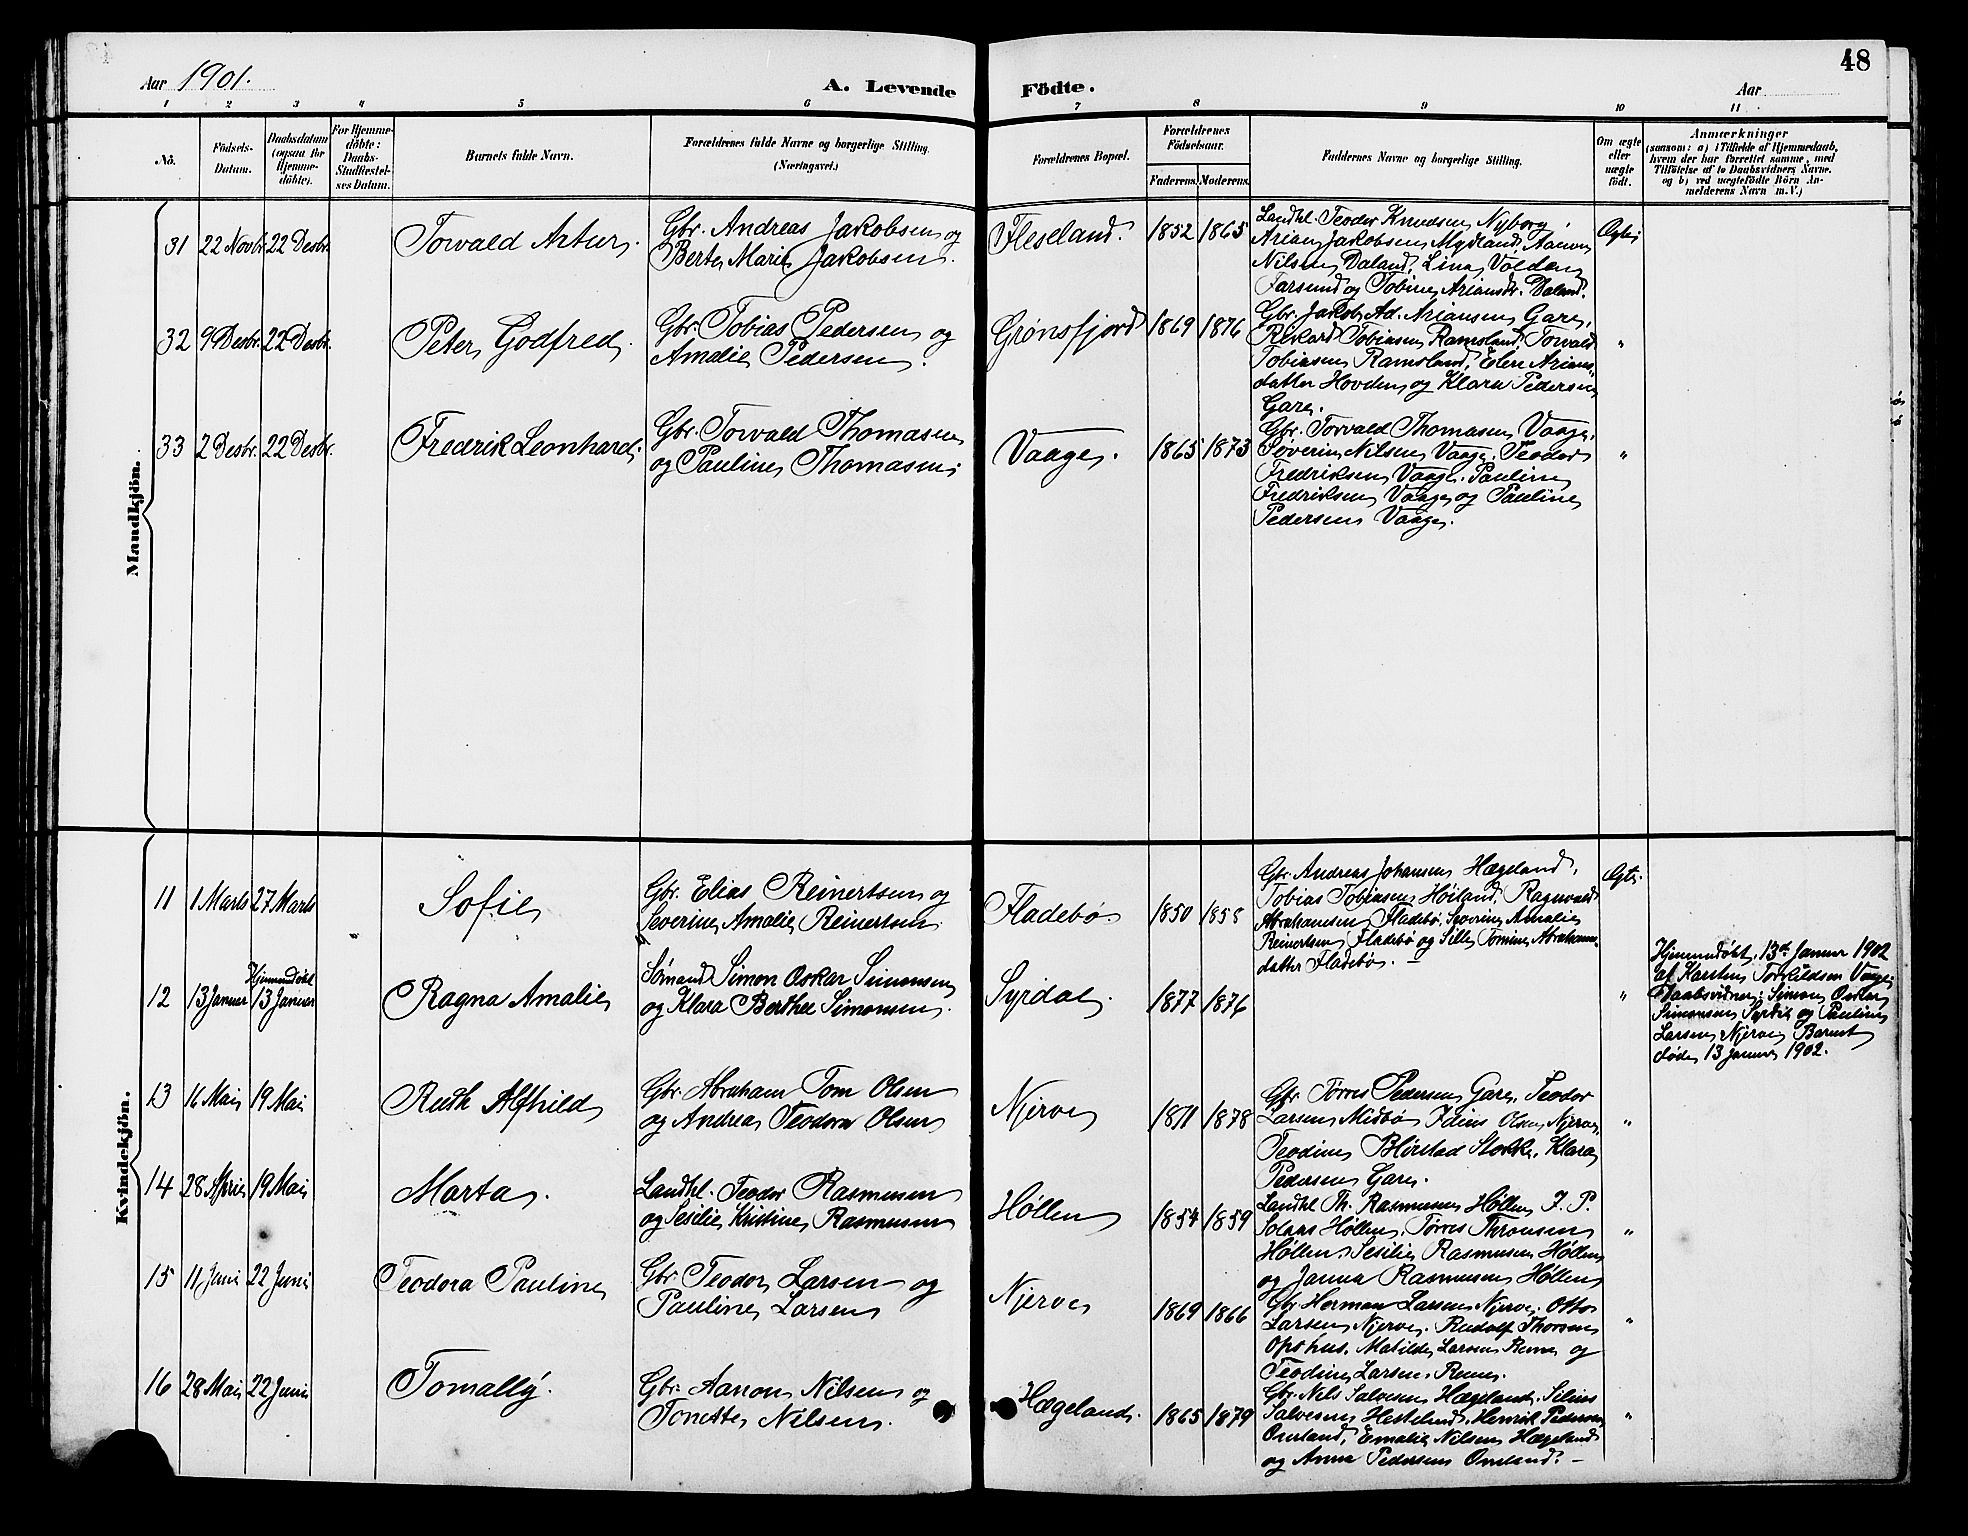 48
Aar 1901.
A. Levende Födte.
Aar
1 2 3 4 5 6 7 8 9 10 11
No.
Födsels-
Datum.
Daabsdatum
(ogsaa for
Hjemme-
döbte).
For Hjemme-
döbte:
Daabs-
Stadfæstel-
ses Datum.
Barnets fulde Navn.
Forældrenes fulde Navne og borgerlige Stilling
(Næringsvei.)
Forældrenes Bopæl.
Forældrenes
Födselsaar.
Faderens. Moderens.
Faddernes Navne og borgerlige Stilling.
Om ægte
eller
uægte
födt.
Anmærkninger
(saasom: a) i Tilfælde af Hjemmedaab,
hvem der har forrettet samme, med
Tilföielse af to Daabsvidners Navne.
og b) ved uægtefödte Börn An-
melderens Navn m. V.)
Mandkjön.
31 22 Novbr. 22 Desbr. Torvald Artur.
Gbr. Andreas Jakobsen og
Berte Marie Jakobsen.
Fleseland. 1852 1865
Landhl. Teodor Knudsen Nyborg,
Arian Jakobsen Mydland, Aanon
Nilsen Daland, Lina Volden
Farsund og Tobine Ariansdr. Daland.
Ægte
32 9 Desbr. 22 Desbr. Peter Godfred.
Gbr. Tobias Pedersen og
Amalie Pedersen.
Grønsfjord 1869 1876
Gbr. Jakob Ad. Ariansen Gare,
Rikard Tobiasen Ramsland, Torvald
Tobiasen Ramsland, Elen Arians-
datter Hovden og Klara Pedersen
Gare.
"
33 2 Desbr. 22 Desbr. Fredrik Leonhard.
Gbr. Torvald Thomasen
og Pauline Thomasen.
Vaage. 1865 1873
Gbr. Torvald Thomasen Vaage,
Søverin Nilsen Vaage, Teodor
Fredriksen Vaage, Pauline
Fredriksen Vaage og Pauline
Pedersen Vaage.
"
Kvindekjön.
11 1 Marts 27 Marts Sofie
Gbr. Elias Reinertsen og
Severine Amalie Reinertsen.
Fladebø 1850 1858
Gbr. Andreas Johansen Hægeland,
Tobias Tobiasen Høiland, Ragnvald
Abrahamsen Fladebø, Severine Amalie
Reinertsen Fladebø og Sille Tomine Abrahams-
datter Fladebø.
Ægte.
12 13 Januar Hjemmedøbt 13 Januar Ragna Amalie
Sømand Simon Oskar Simonsen
og Klara Berthee Simonsen.
Syrdal. 1877 1876
"
Hjemmedøbt 13de Januar 1902
af Karsten Torkildsen Vaage,
Daabsvidner: Simon Oskar
Simonsen Syrdal og Pauline
Larsen Njerve Barnet
døde 13 Januar 1902.
13 16 Mai 19 Mai Ruth Alfhild
Gbr. Abraham Tom Olsen
og Andrea Teodora Olsen
Njerve 1871 1878
Gbr. Tørres Pedersen Gare, Teodor
Larsen Midbø Idius Olsen Njerve,
Teodine Blørstad Stokke, Klara
Pedersen Gare.
"
14 28 April 19 Mai Marta.
Landhl. Teodor Rasmusen
og Sesilie Kristine Rasmusen
Høllen 1854 1859
Landhl Th. Rasmusen Høllen, J. P.
Solaas Høllen, Tørres Thronsen
Høllen, Sesilie Rasmusen Høllen
og Janna Rasmusen Høllen
"
15 11 Juni 22 Juni Teodora Pauline
Gbr. Teodor Larsen og
Pauline Larsen
Njerve 1869 1866
Gbr. Herman Larsen Njerve, Otto
Larsen Njerve, Rudolf Thorsen
Opshus, Matilde Larsen Rune og
Teodine Larsen Rune.
"
16 28 Mai 22 Juni Tomally.
Gbr. Aanon Nilsen og
Tonette Nilsen.
Hægeland. 1865 1879
Gbr. Nils Salvesen Hægeland, Selius
Salvesen Hesteland, Henrik Pedersen
Omland, Emalie Nilsen Hægeland
og Anna Pedersen Omland.
"